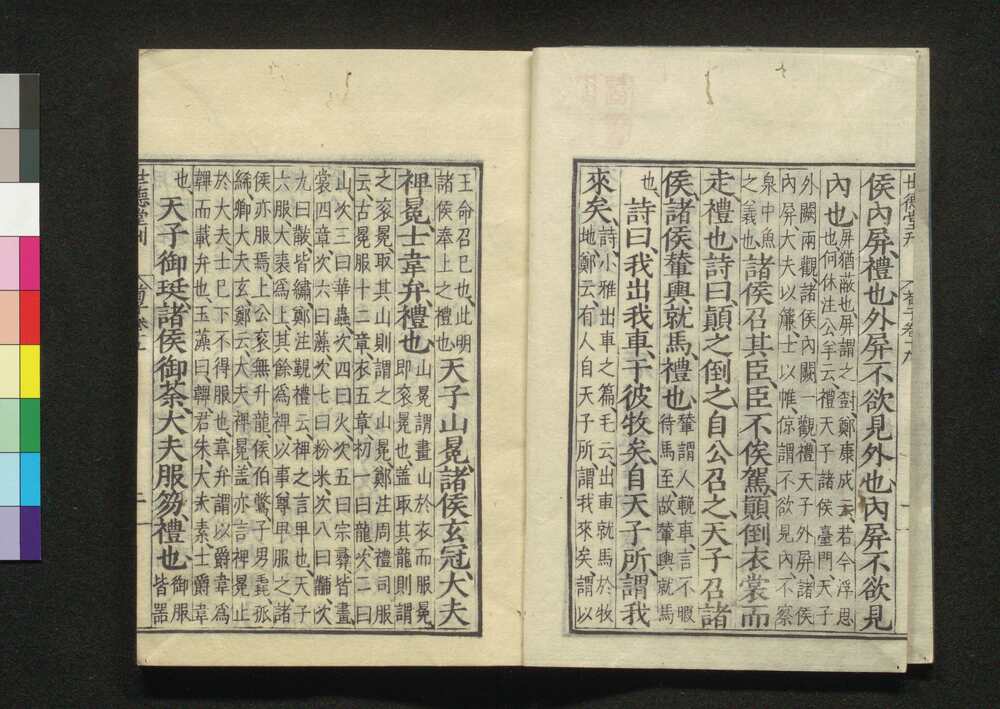 世德堂刊
荀子卷十九
一
侯內屏、禮也、外屏不欲見外也、內屏不欲見
內也、屏猶蔽也、屏謂之樹、鄭康成云、若今浮思
也、何休注公羊云、禮天子諸侯臺門、天子
外闕兩觀、諸侯內闕一觀、禮天子外屏、諸侯
內屏、大夫以簾、士以帷、倞謂不欲見內、不察
泉中魚
之義也、諸侯召其臣、臣不俟駕、顛倒衣裳而
走、禮也、詩曰、顛之倒之、自公召之、天子召諸
侯、諸侯輦輿就馬、禮也、輦謂人輓車、言不暇
待馬至、故輦輿就馬
也、詩曰、我出我車、于彼牧矣、自天子所、謂我
來矣、詩小雅出車之篇、毛云、出車就馬於牧
地、鄭云、有人自天子所、謂我來矣、謂以
王命召已也、此明
諸侯奉上之禮也、天子山冕、諸侯玄冠、大夫
裨冕、士韋弁、禮也、山冕謂畫山於衣而服冕、
即衮冕也、蓋取其龍則謂
之衮冕、取其山則謂之山冕、鄭注周禮司服
云、古冕服十二章、衣五章、初一曰龍、次二曰
山、次三曰華蟲、次四曰火、次五曰宗彝、皆畫、
裳四章、次六曰藻、次七曰粉米、次八曰黼、次
九曰黻、皆繡、鄭注覲禮云、裨之言卑也、天子
六服、大裘爲上、其餘爲裨、以事尊卑服之、諸
侯亦服焉、上公衮無升龍、侯伯鷩、子男毳、孤
絺、卿大夫玄、鄭云、大夫裨冕、蓋亦言裨冕止
於大夫、士已下不得服也、韋弁謂以爵韋爲
韠而載弁也、玉藻曰、韠君朱大夫素士爵韋
也、天子御珽、諸侯御荼、大夫服笏、禮也、御服
皆器
世德堂刊